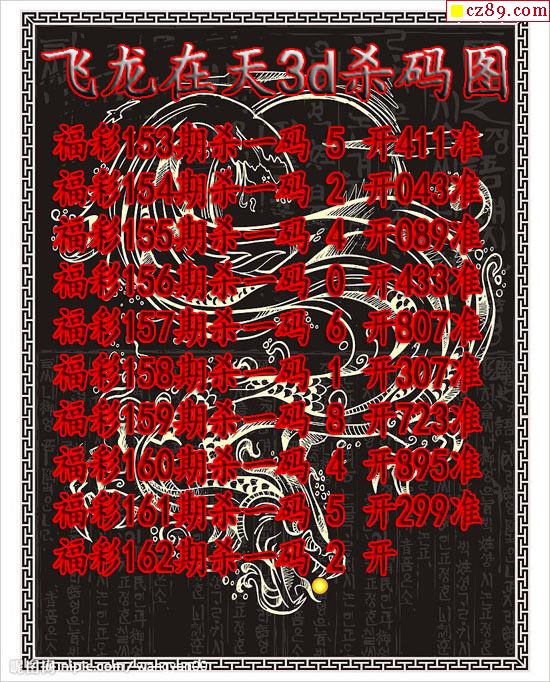 cz89.com
飞龙在天3d杀码图
福彩153期杀一码 5 开411准
福彩154期杀一码 2 开043准
福彩155期杀一码 4 开089准
福彩156期杀一码 0 开433准
福彩157期杀一码 6 开807准
福彩158期杀一码 1 开307准
福彩159期杀一码 8 开723准
福彩160期杀一码 4 开895准
福彩161期杀一码 5 开299准
福彩162期杀一码 2 开